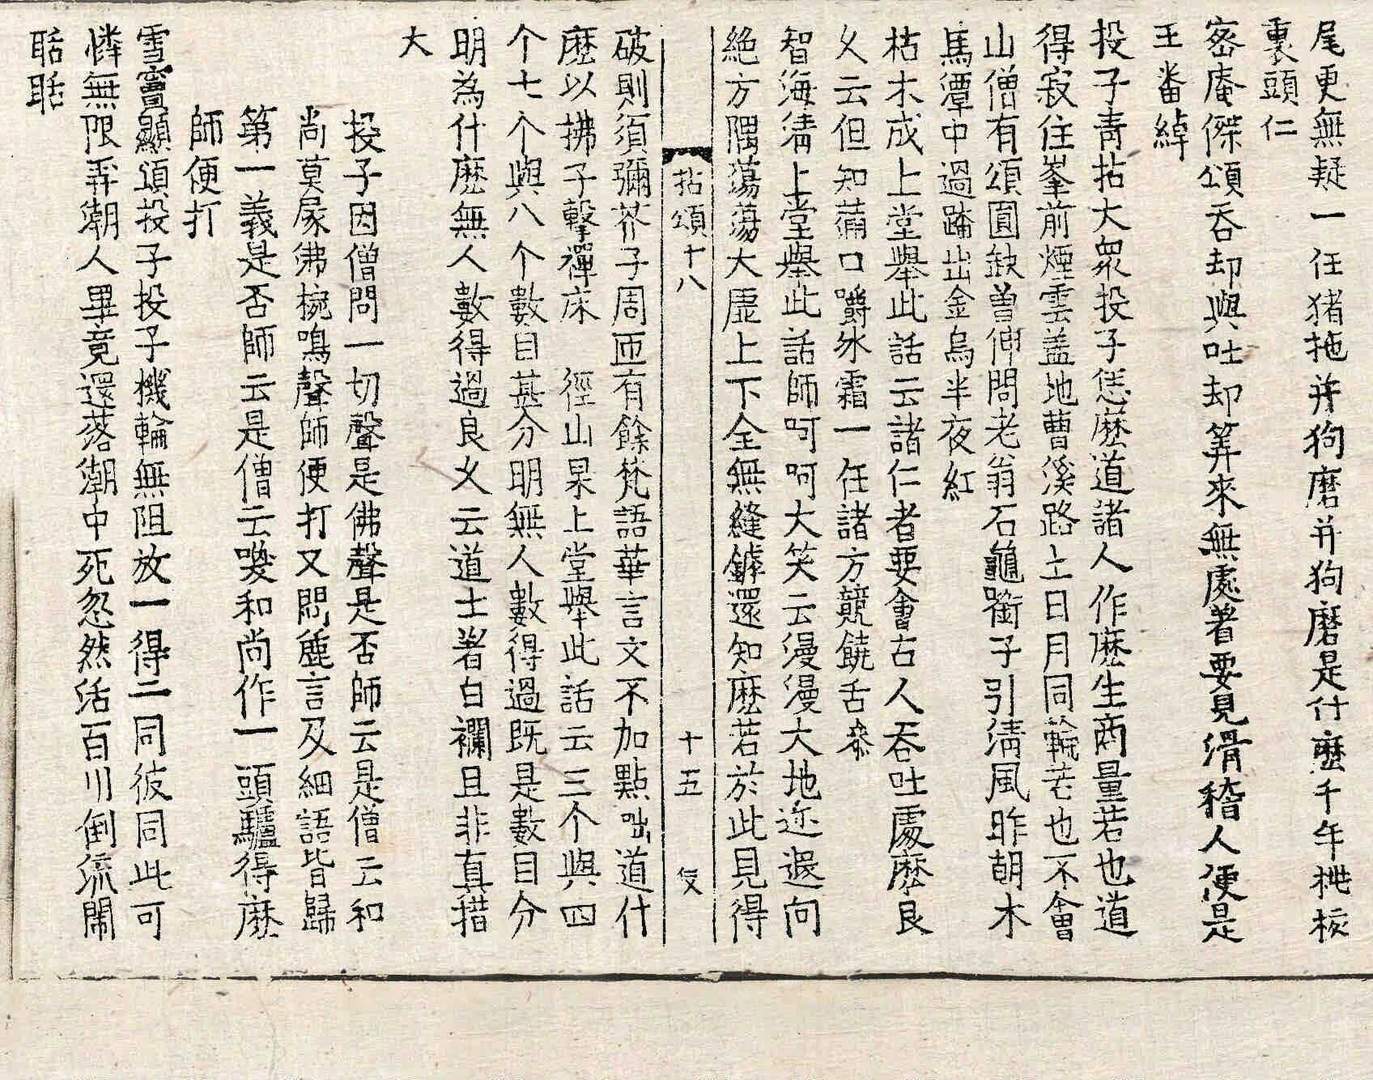 尾更無疑一任猪拖幷狗磨幷狗磨是什麽千年桃核
裏頭仁
密庵傑頌吞却與吐却筭來無處著要見滑稽人便是
王番綽
投子靑拈大衆投子恁麽道諸人作麽生商量若也道
得寂住峯前煙雲盖地曹溪路上日月同輪若也不會
山僧有頌圓缺曾伸問老翁石龜㘅子引淸風昨朝木
馬潭中過踏出金烏半夜紅
枯木成上堂擧此話云諸仁者要會古人吞吐處麽良
乆云但知蒲口嚼氷霜一任諸方競饒舌叅
智海淸上堂擧此話師呵呵大笑云漫漫大地迯遐向
絕方隅蕩蕩大虛上下全無縫罅還知麽若於此見得
拈頌十八 十五
破則須彌芥子周匝有餘梵語華言文不加點咄道什
麽以拂子擊禪床 徑山杲上堂擧此話云三个與四
个七个與八个數目甚分明無人數得過旣是數目分
明為什麽無人數得過良乆云道士著白襴且非真措
大
投子因僧問一切聲是佛聲是否師云是僧云和
尚莫㞘佛椀鳴聲師便打又問麁言及細語皆歸
第一義是否師云是僧云喚和尚作一頭驢得麽
師便打
雪竇顯頌投子投子機輪無阻放一得二同彼同此可
憐無限弄潮人畢竟還落潮中死忽然活百川倒流閙
聒聒